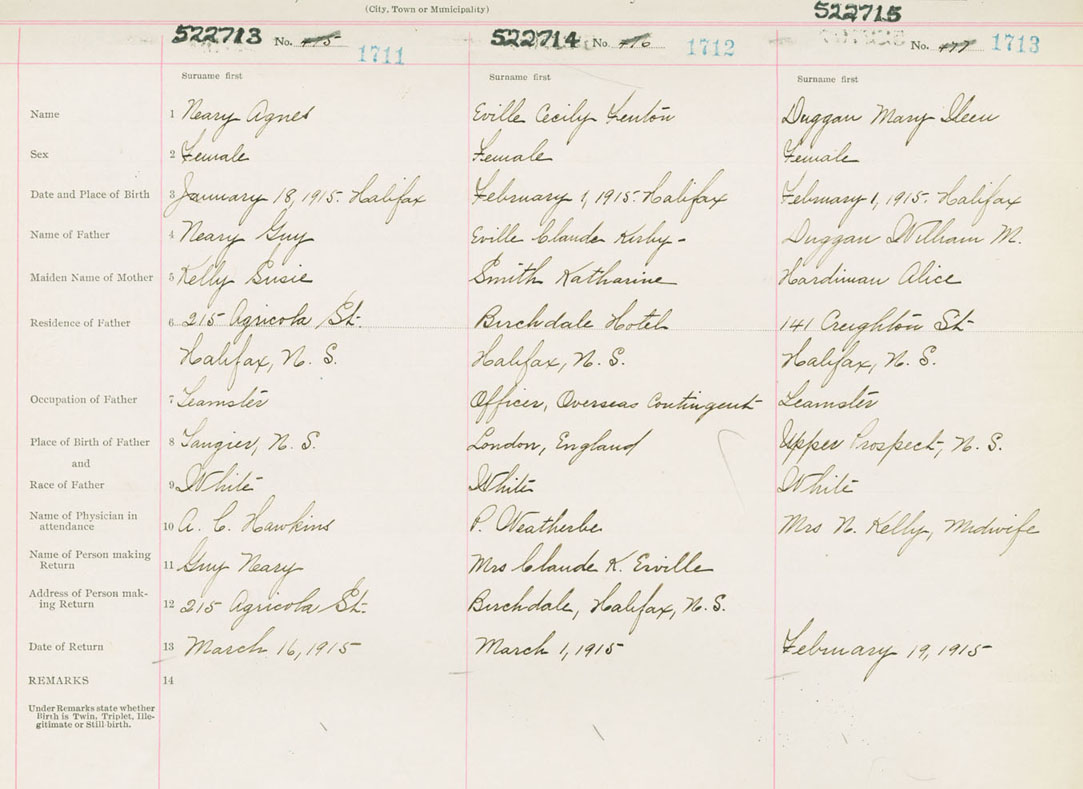 (City, Town or Municipality)
522713 No. 1711 522714 No. 1712 522715 No. 477 1713
Surname first Surname first Surname first
Name 1 Neary Agnes Eville Cecily Fenton Duggan Mary Ileen
Sex 2 Female Female Female
Date and Place of Birth 3 January 18, 1915. Halifax February 1, 1915. Halifax February 1, 1915. Halifax
Name of Father 4 Neary Guy Eville Claude Kirby- Duggan William M.
Maiden Name of Mother 5 Kelly Susie Smith Katharine Hardiman Alice
Residence of Father 6 215 Agricola St. Birchdale Hotel 141 Creighton St.
Halifax, N. S. Halifax, N. S. Halifax, N. S.
Occupation of Father 7 Teamster Officer, Overseas Contingent Teamster
Place of Birth of Father 8 Tangier, N. S. London, England Upper Prospect, N. S.
and
Race of Father 9 White White White
Name of Physician in attendance 10 A. C. Hawkins P. Weatherbe Mrs N. Kelly, Midwife
Name of Person making Return 11 Guy Neary Mrs Claude K. Erville
Address of Person mak-
ing Return 12 215 Agricola St. Birchdale, Halifax, N. S.
Date of Return 13 March 16, 1915 March 1, 1915 February 19, 1915
REMARKS 14
Under Remarks state whether
Birth is Twin, Triplet, Ille-
gitimate or Still-birth.